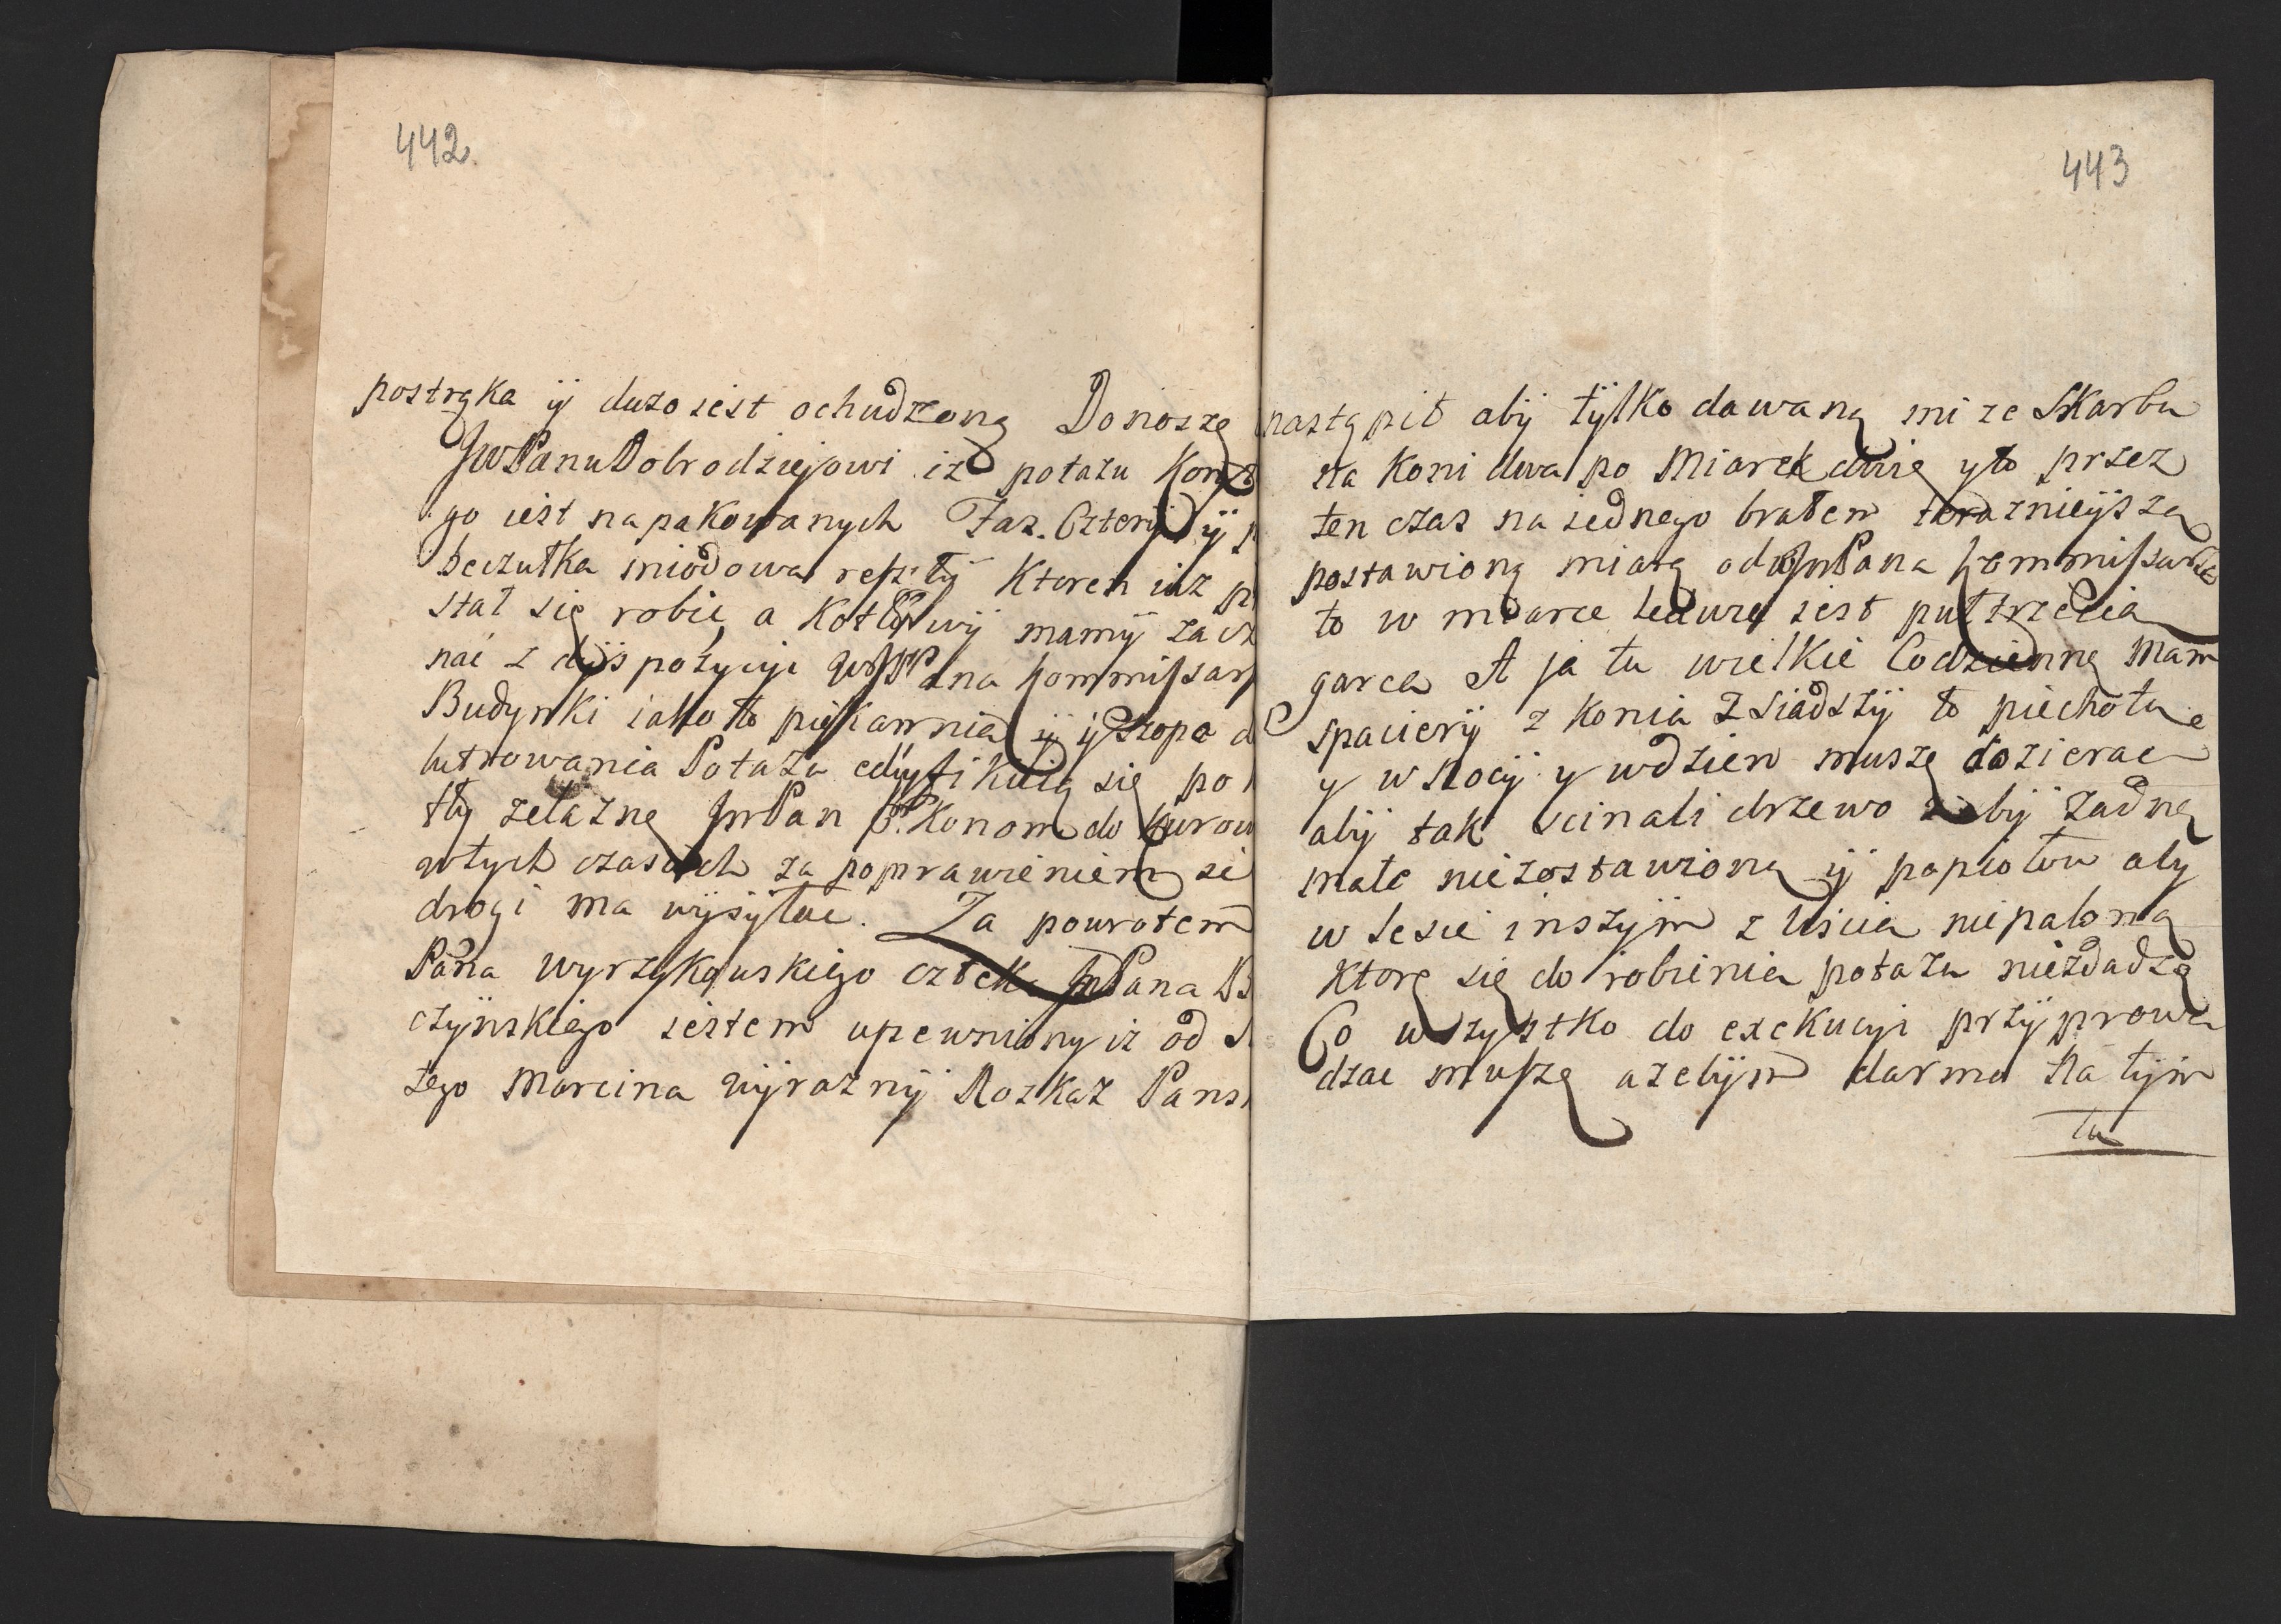 442
postrąka ÿ duzo iest ochudzoną Donoszę
JWPanu Dobrodziejowi iz potazu
go iest napakowanych Faz. Czterÿ ÿ
beczułka miodowa reszty Ktoren iuz
stał się robic, a Kotłÿ wÿ mamÿ
nai z dÿspozycÿi Kommissar
Budynki iako to piekarnia ÿ ÿ Szopa
lutrowania Potazu edyfikuią się po
tły zelazne JmPan Konom do Kurow
wtych czasach za poprawieniem
drogi ma wÿsÿłac. Za powrotem
Pana Wyrzykowskiego człek JmPana
czÿnskiego iestem upewniony iz od
tego Marcina wÿraznÿ Rozkaz Pans
443
nastąpił abÿ tÿlko dawaną mi ze Skarbu
na Koni dwa po Miarek dwie y to przez
ten czas na iednego brałem terazniejszą
postawioną miarą od JmPana Kommissarza
to w miarce iest puł trzecia
garca A ja tu wielkie Codzienne Mam
spacierÿ z Konia Zsiadszÿ to piechotu
y w Nocÿ y wdzien muszę dozierac
abÿ tak scinali drzewo zebÿ Zadne
małe niezostawione ÿ popiołu aby
w lesie inszÿm z liscia niepalono
Ktore się do robienia potazu niezdadzą
Co wszystko do exekucÿi przÿprowa
dzac muszę azebÿm darmo Na tÿm
tu